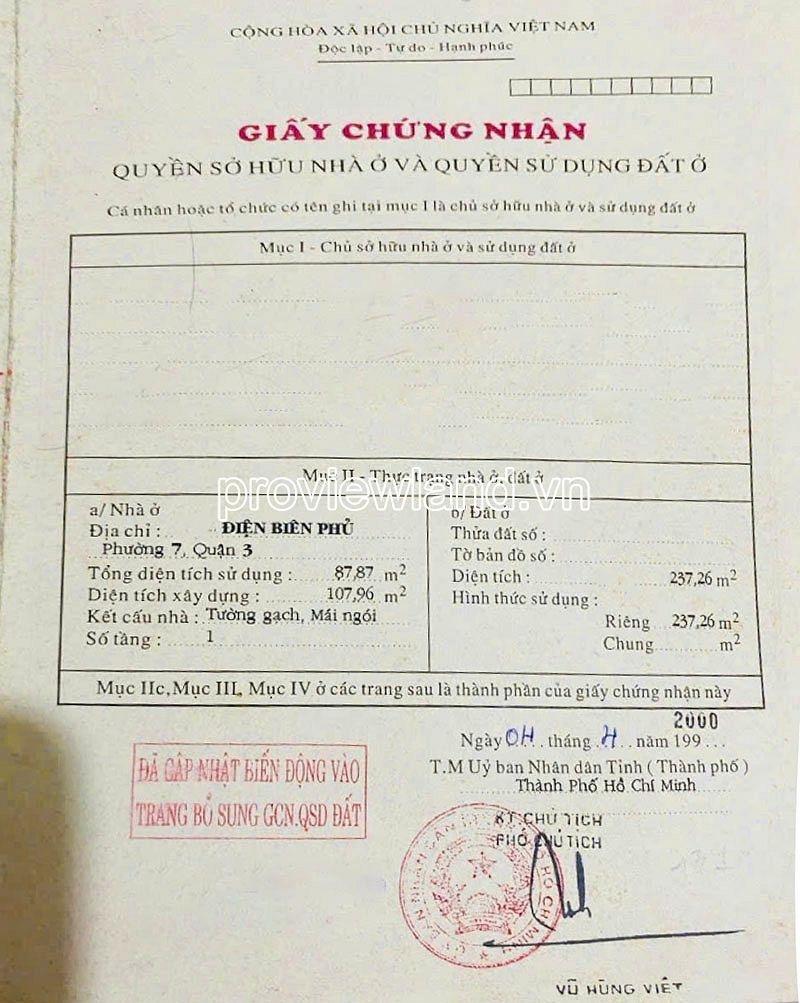 CỘNG HÒA XÃ HỘI CHỦ NGHĨA VIỆT NAM
Độc lập - Tự do - Hạnh phúc
GIẤY CHỨNG NHẬN
QUYỀN SỞ HỮU NHÀ Ở VÀ QUYỀN SỬ DỤNG ĐẤT Ở
Cá nhân hoặc tổ chức có tên ghi tại mục I là chủ sở hữu nhà ở và sử dụng đất ở
Mục I - Chủ sở hữu nhà ở và sử dụng đất ở
Mục II - Thực trạng nhà ở, đất ở
proviewland.vn
a/ Nhà ở
Địa chỉ : ĐIỆN BIÊN PHỦ
Phường 7, Quận 3
Tổng diện tích sử dụng : 87,87 m²
Diện tích xây dựng : 107,96 m²
Kết cấu nhà : Tường gạch, Mái ngói
Số tầng : 1
b/ Đất ở
Thửa đất số :
Tờ bản đồ số :
Diện tích : 237,26 m²
Hình thức sử dụng :
Riêng 237,26 m²
Chung m²
Mục IIc, Mục III, Mục IV ở các trang sau là thành phần của giấy chứng nhận này
2000
Ngày 04 tháng 4 năm 199
T.M Uỷ ban Nhân dân Tỉnh ( Thành phố )
Thành Phố Hồ Chí Minh
KT.CHỦ TỊCH
PHÓ CHỦ TỊCH
ĐÃ CẬP NHẬT BIẾN ĐỘNG VÀO
TRANG BỔ SUNG GCN.QSD ĐẤT
VŨ HÙNG VIỆT